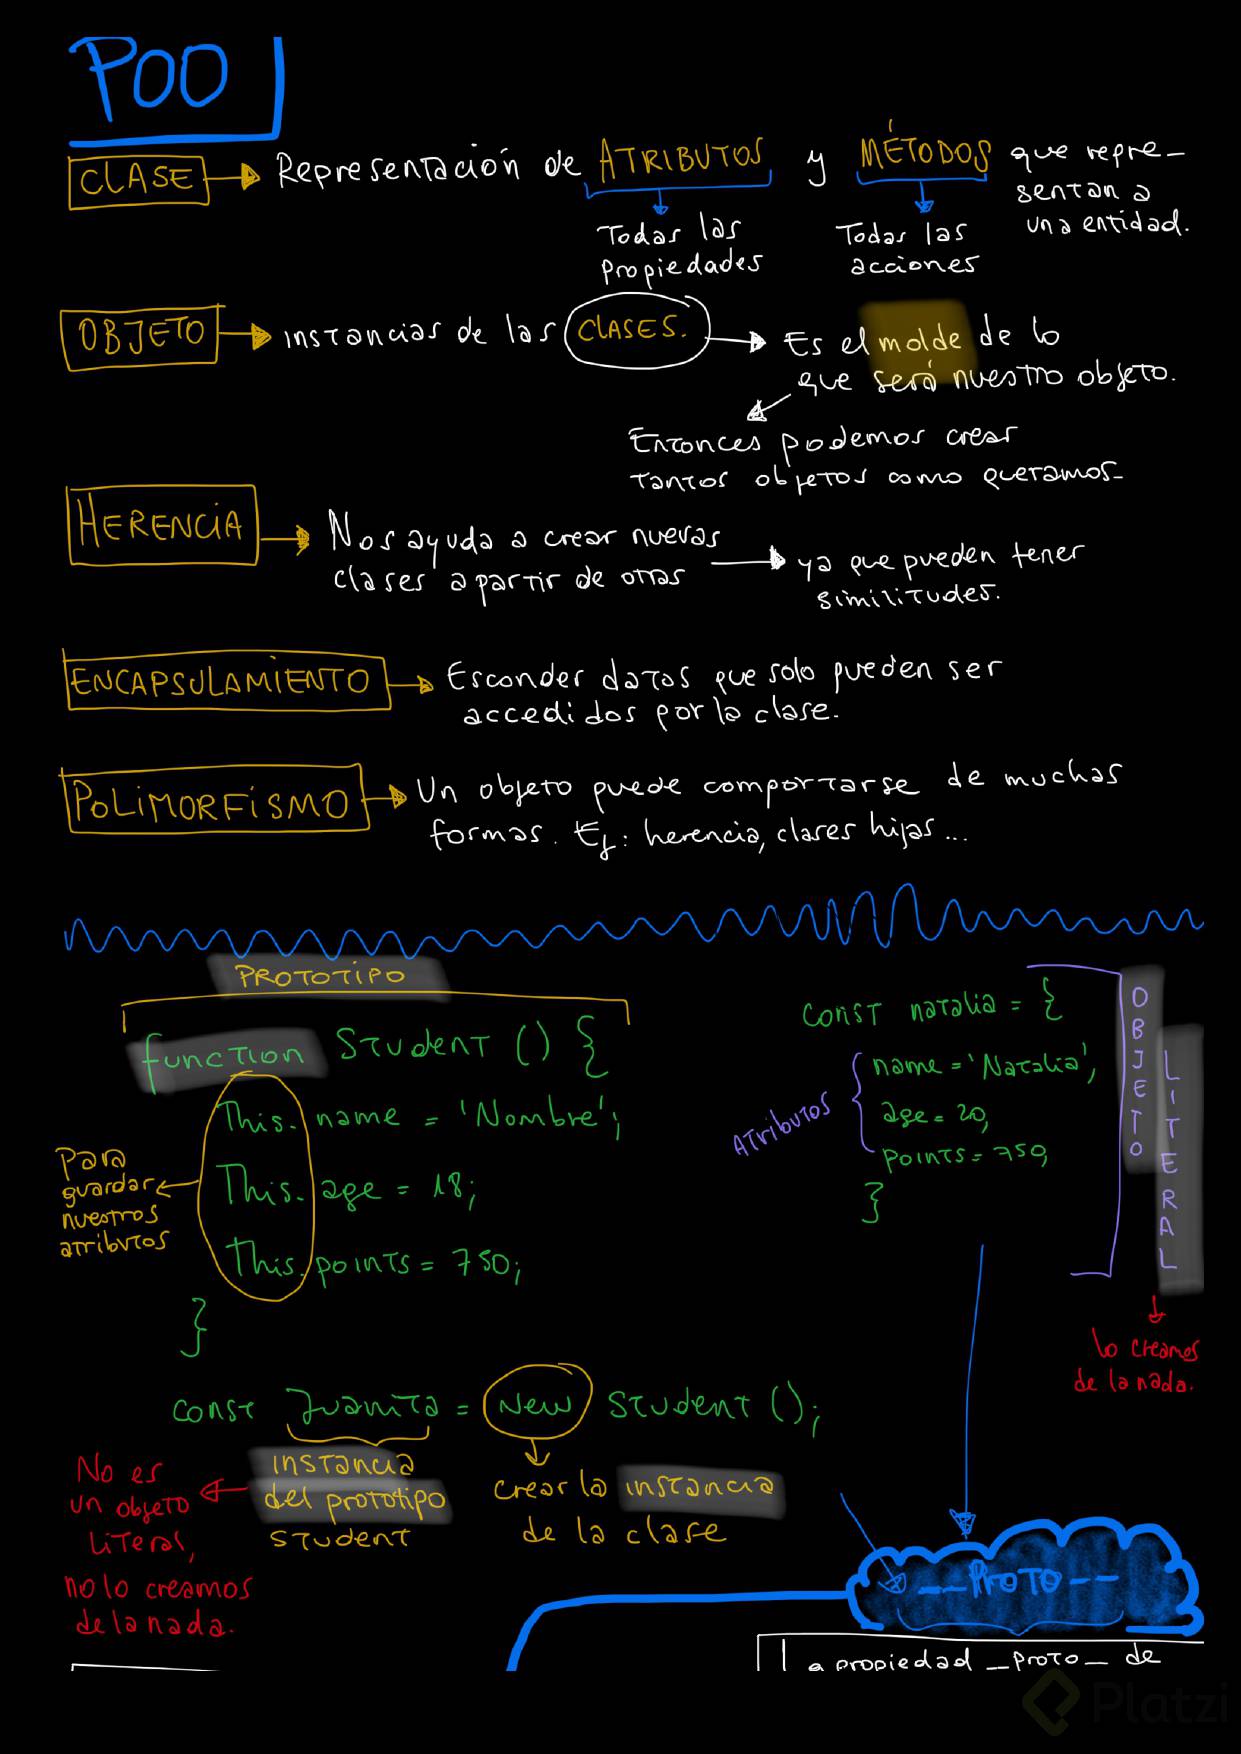 POO
CLASE Representación de ATRIBUTOS y MÉTODOS que repre-
sentan a
una entidad.
Todas las
propiedades
Todas las
acciones
OBJETO instancias de las CLASES. Es el molde de lo
que será nuestro objeto.
Entonces podemos crear
tantos objetos como queramos-
HERENCIA Nos ayuda a crear nuevas
clases a partir de otras
ya que pueden tener
similitudes.
ENCAPSULAMIENTO Esconder datos que solo pueden ser
accedidos por la clase.
POLIMORFISMO Un objeto puede comportarse de muchas
formas. Ej: herencia, clases hijas...
PROTOTIPO
function Student () {
This. name = 'Nombre';
This. age = 18;
This. points = 750;
}
Para
guardar
nuestros
atributos
const natalia = {
name = 'Natalia',
age = 20,
points = 750,
}
Atributos
OBJETO
LITERAL
lo creamos
de la nada.
const Juanita = New Student ();
instancia
del prototipo
student
crear la instancia
de la clase
No es
un objeto
literal,
no lo creamos
de la nada.
__PROTO--
La propiedad __proto__ de
Platzi